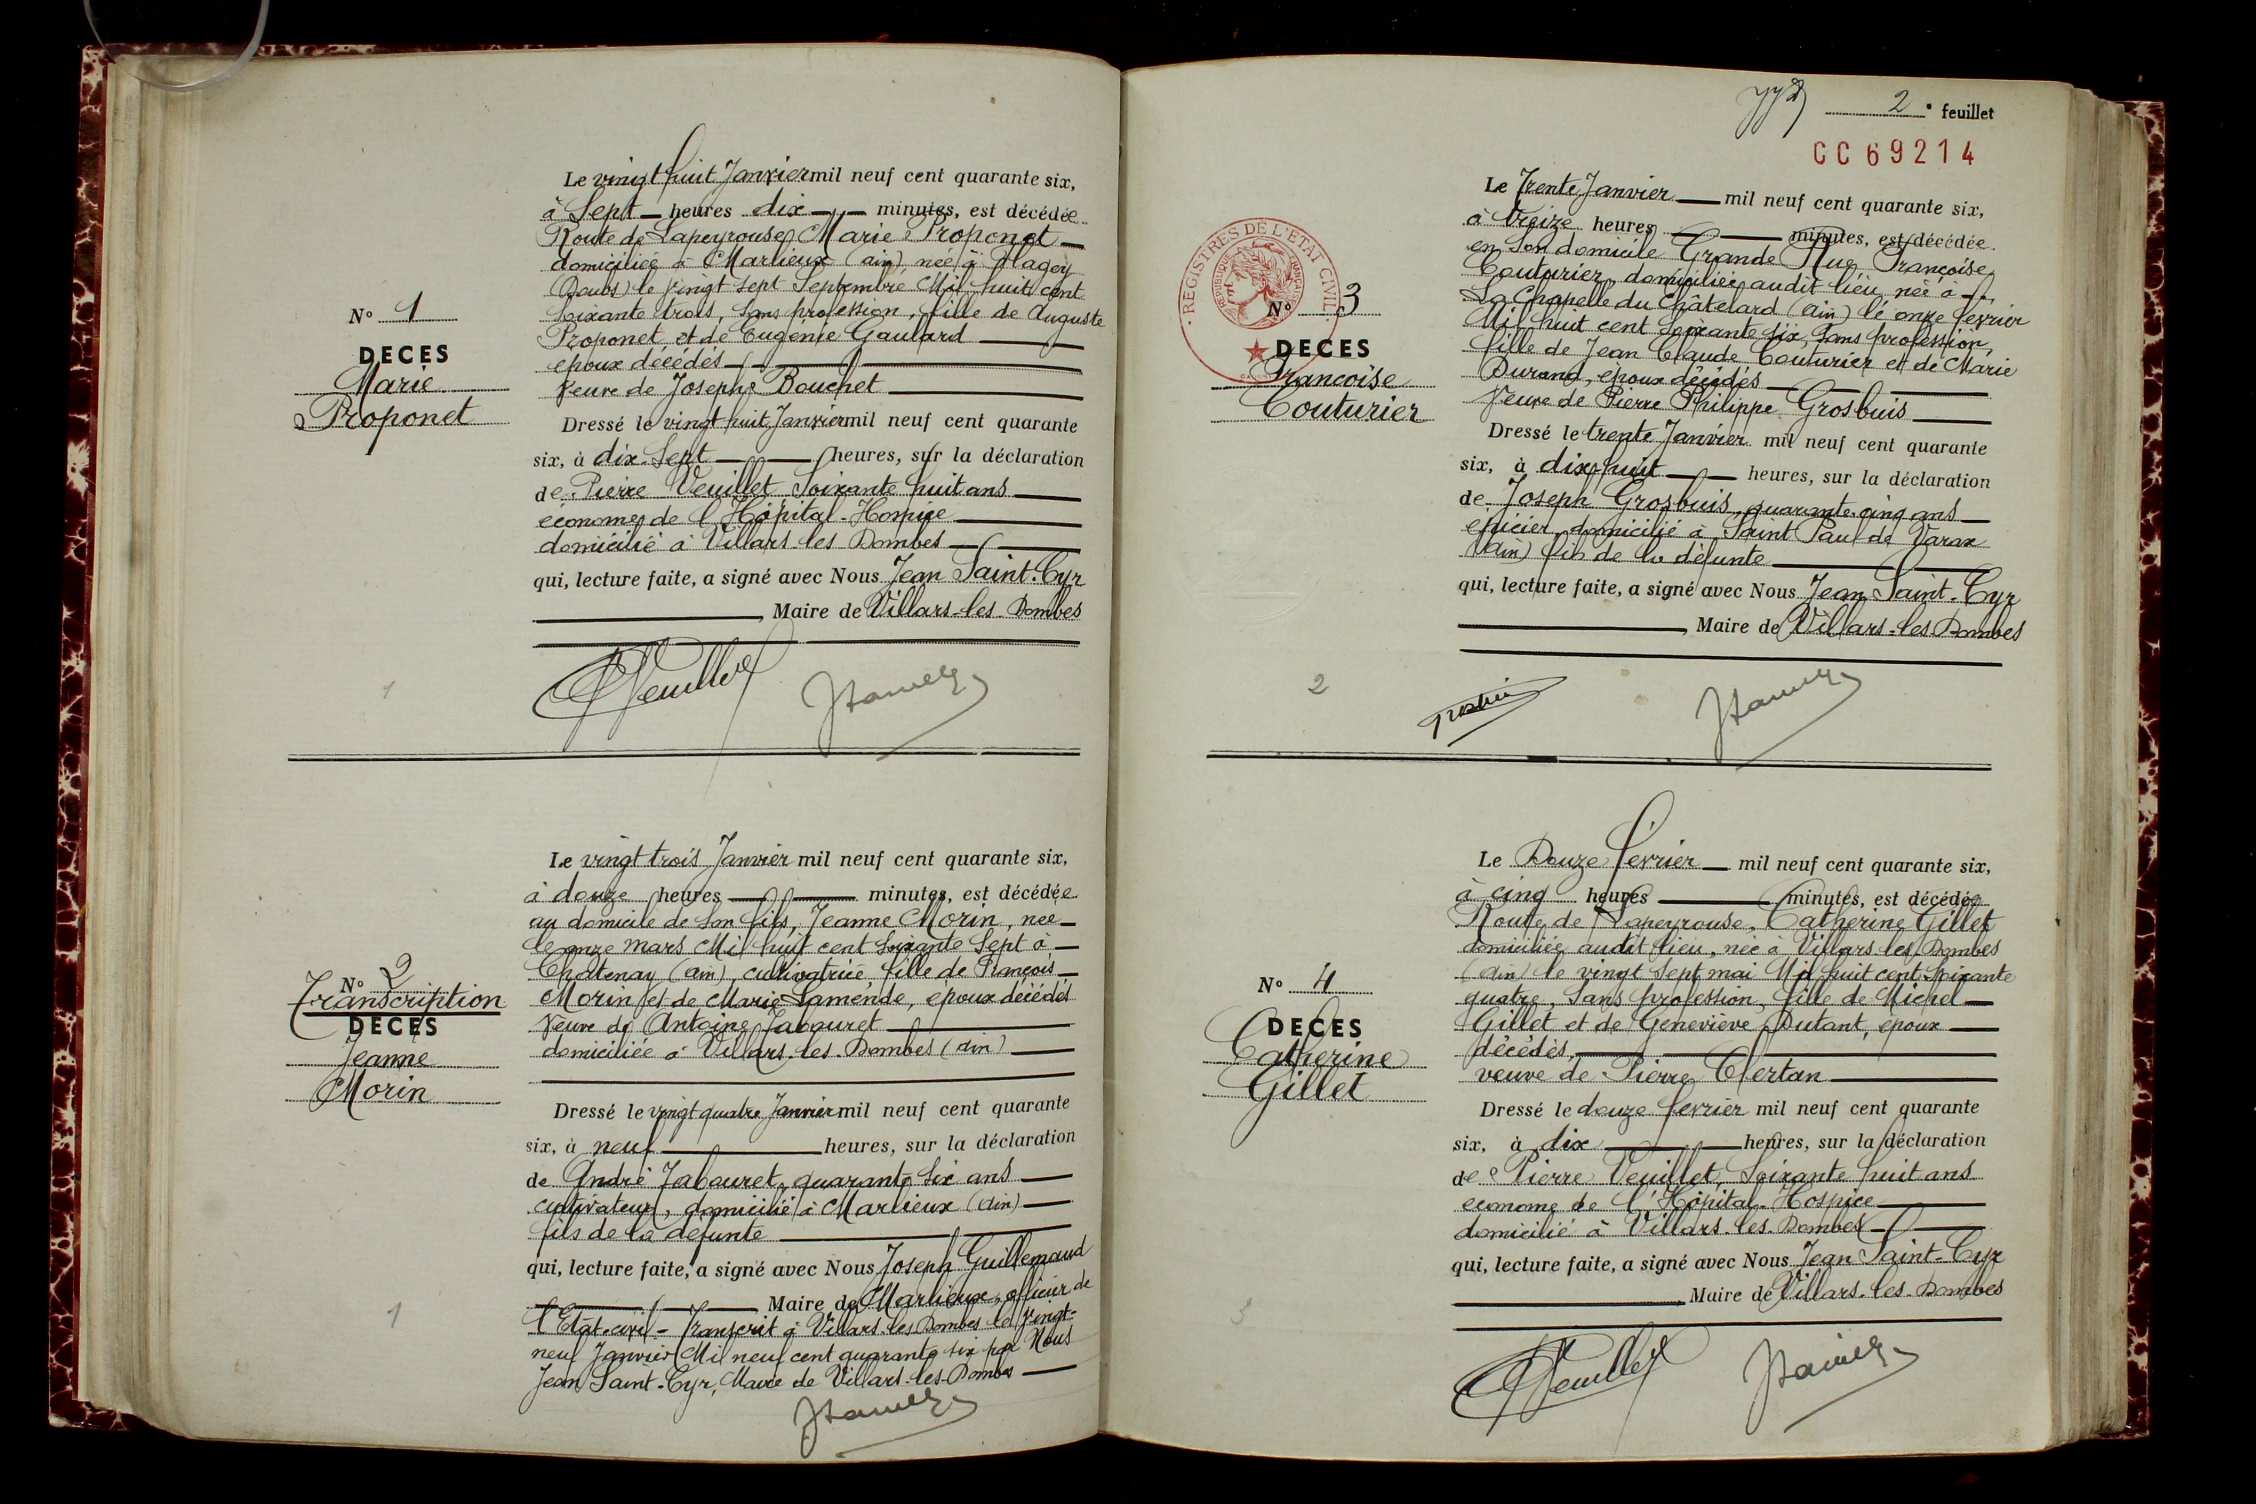 N° 1
DECES
Marie
Proponet
Le vingt huit Janvier mil neuf cent quarante six,
à Sept heures dix minutes, est décédée
Route de Lapeyrouse, Marie Proponet
domiciliée à Marlieux (ain), née à Flagey
(Doubs) le vingt sept Septembre Mil huit cent
soixante trois, sans profession, fille de Auguste
Proponet et de Eugénie Gaulard
epoux décédés
Veuve de Joseph Bouchet
Dressé le vingt huit Janvier mil neuf cent quarante
six, à dix-Sept heures, sur la déclaration
de Pierre Veuillet, Soixante huit ans
économe de l'Hôpital-Hospice
domicilié à Villars-les-Dombes
qui, lecture faite, a signé avec Nous Jean Saint-Cyr
Maire de Villars-les-Dombes
1
N° 2
Transcription
DECES
Jeanne
Morin
Le vingt trois Janvier mil neuf cent quarante six,
à douze heures minutes, est décédée
au domicile de son fils, Jeanne Morin, née
le onze mars Mil huit cent soixante Sept à
Châtenay (ain), cultivatrice, fille de François
Morin et de Marie Lamende, époux décédés
Veuve de Antoine Tabouret
domiciliée à Villars-les-Dombes (ain)
Dressé le vingt quatre Janvier mil neuf cent quarante
six, à neuf heures, sur la déclaration
de André Tabouret, quarante six ans
cultivateur, domicilié à Marlieux (ain)
fils de la défunte
qui, lecture faite, a signé avec Nous Joseph Guillemaud
Maire de Marlieux, officier de
l'Etat-civil - Transcrit à Villars-les-Dombes le vingt-
neuf Janvier Mil neuf cent quarante six par Nous
Jean Saint-Cyr, Maire de Villars-les-Dombes
1
2e feuillet
CC 69214
REGISTRES DE L'ETAT CIVIL
REPUBLIQUE FRANÇAISE
N° 3
DECES
Françoise
Couturier
Le Trente Janvier mil neuf cent quarante six,
à treize heures minutes, est décédée
en son domicile Grande Rue, Françoise
Couturier, domiciliée audit lieu, née à
La Chapelle du Châtelard (ain) le onze fevrier
Mil huit cent soixante six, sans profession,
fille de Jean Claude Couturier et de Marie
Durand, epoux décédés
Veuve de Pierre Philippe Grosbuis
Dressé le trente Janvier mil neuf cent quarante
six, à dix-huit heures, sur la déclaration
de Joseph Grosbuis, quarante-cinq ans
epicier, domicilié à Saint Paul de Varax
(ain) fils de la défunte
qui, lecture faite, a signé avec Nous Jean Saint-Cyr
Maire de Villars-les-Dombes
2
N° 4
DECES
Catherine
Gillet
Le Douze février mil neuf cent quarante six,
à cinq heures minutes, est décédée
Route de Lapeyrouse, Catherine Gillet
domiciliée audit lieu, née à Villars-les-Dombes
(ain) le vingt sept mai Mil huit cent soixante
quatre, sans profession, fille de Michel
Gillet et de Geneviève Dutant, époux
décédés,
veuve de Pierre Clertan
Dressé le douze fevrier mil neuf cent quarante
six, à dix heures, sur la déclaration
de Pierre Veuillet, Soixante huit ans
econome de l'Hôpital-Hospice
domicilié à Villars-les-Dombes
qui, lecture faite, a signé avec Nous Jean Saint-Cyr
Maire de Villars-les-Dombes
3